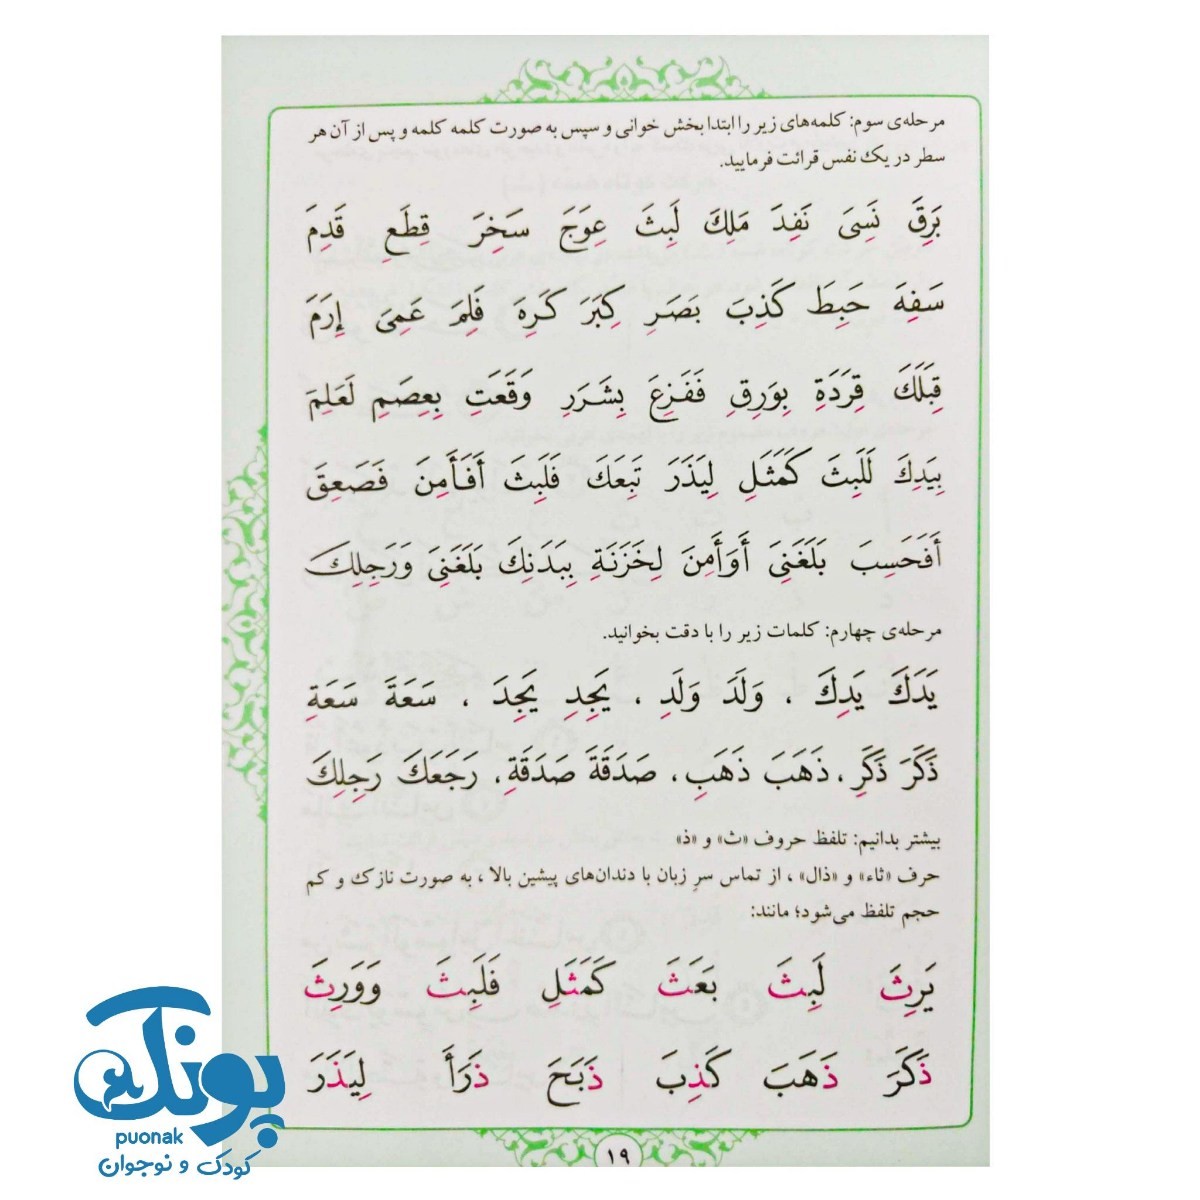 مرحله‌ی سوم: کلمه‌های زیر را ابتدا بخش خوانی و سپس به صورت کلمه کلمه و پس از آن هر
سطر در یک نفس قرائت فرمایید.
بَرِقَ نَسِیَ نَفِدَ مَلِكَ لَبِثَ عِوَجَ سَخِرَ قِطَعِ قَدِمَ
سَفِهَ حَبِطَ كَذِبَ بَصَرِ كِبَرَ كَرِهَ فَلِمَ عَمِیَ إِرَمَ
قِبَلَكَ قِرَدَةِ بِوَرِقِ فَفَزِعَ بِشَرَرِ وَقَعَتِ بِعِصَمِ لَعَلِمَ
بِيَدِكَ لَلَبِثَ كَمَثَلِ لِيَذَرَ تَبِعَكَ فَلَبِثَ أَفَأَمِنَ فَصَعِقَ
أَفَحَسِبَ بَلَغَنِیَ أَوَأَمِنَ لِخَزَنَةِ بِبَدَنِكَ بَلَغَنِیَ وَرَجِلِكَ
مرحله‌ی چهارم: کلمات زیر را با دقت بخوانید.
يَدَكَ يَدِكَ ، وَلَدَ وَلَدِ ، يَجِدِ يَجِدَ ، سَعَةَ سَعَةِ
ذَكَرَ ذَكَرِ ، ذَهَبَ ذَهَبِ ، صَدَقَةَ صَدَقَةِ ، رَجَعَكَ رَجِلِكَ
بیشتر بدانیم: تلفظ حروف «ث» و «ذ»
حرف «ثاء» و «ذال» ، از تماس سرِ زبان با دندان‌های پیشین بالا ، به صورت نازک و کم
حجم تلفظ می‌شود؛ مانند:
يَرِثَ لَبِثَ بَعَثَ كَمَثَلِ فَلَبِثَ وَوَرِثَ
ذَكَرَ ذَهَبَ كَذِبَ ذَبَحَ ذَرَأَ لِيَذَرَ
۱۹
پونک
puonak
کودک و نوجوان